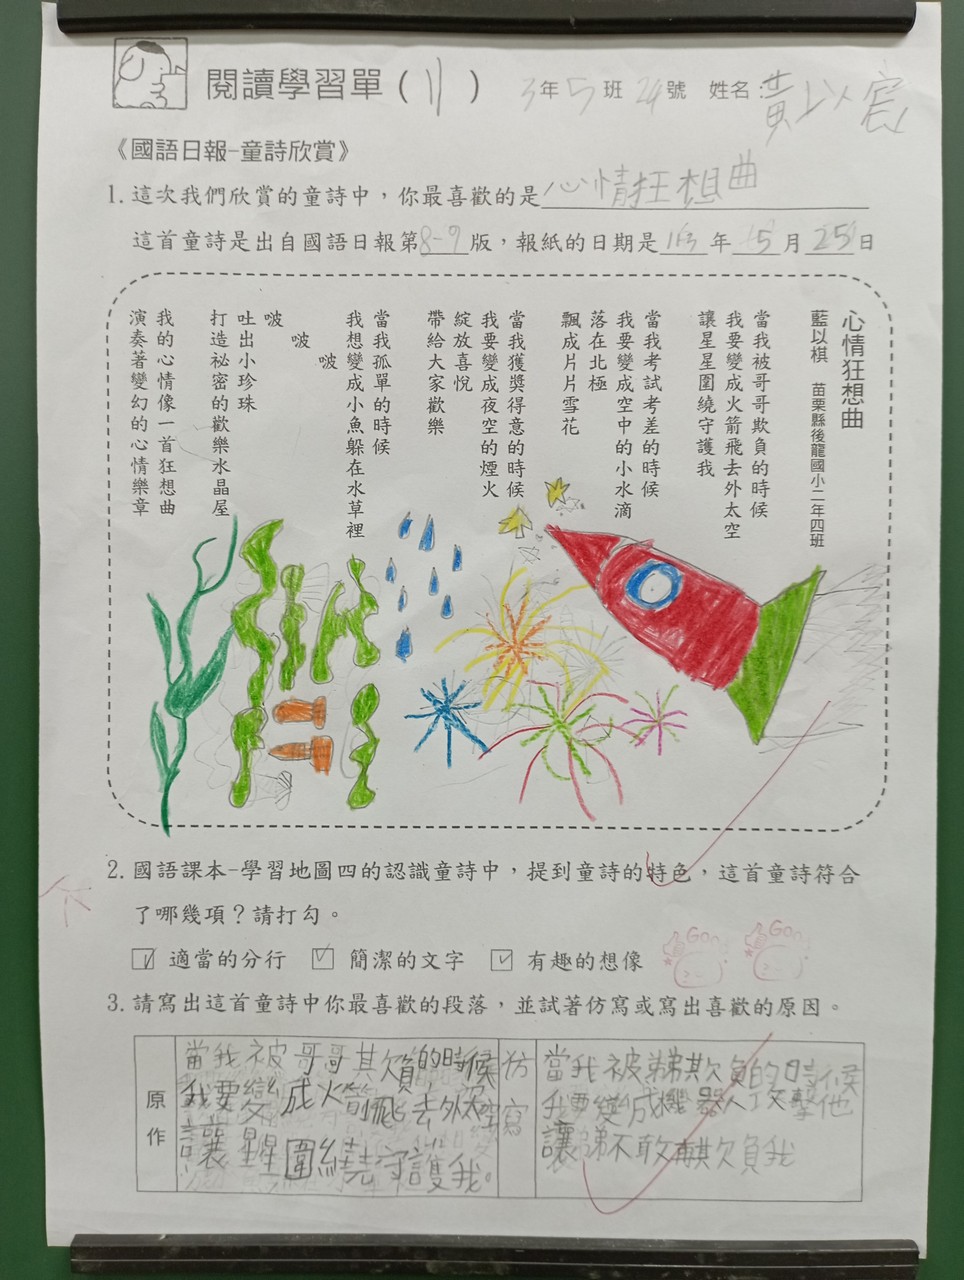 閱讀學習單(11) 3年5班24號 姓名:黃以宸
《國語日報-童詩欣賞》
1. 這次我們欣賞的童詩中，你最喜歡的是心情狂想曲
這首童詩是出自國語日報第8-9版，報紙的日期是113年5月25日
心情狂想曲
藍以棋 苗栗縣後龍國小二年四班
當我被哥哥欺負的時候
我要變成火箭飛去外太空
讓星星圍繞守護我
當我考試考差的時候
我要變成空中的小水滴
落在北極
飄成片片雪花
當我獲獎得意的時候
我要變成夜空的煙火
綻放喜悅
帶給大家歡樂
當我孤單的時候
我想變成小魚躲在水草裡
啵
啵
啵
吐出小珍珠
打造祕密的歡樂水晶屋
我的心情像一首狂想曲
演奏著變幻的心情樂章
2. 國語課本-學習地圖四的認識童詩中，提到童詩的特色，這首童詩符合
了哪幾項？請打勾。
適當的分行 簡潔的文字 有趣的想像
GO
GO
3. 請寫出這首童詩中你最喜歡的段落，並試著仿寫或寫出喜歡的原因。
原作
當我被哥哥欺負的時候
我要變成火箭飛去外太空
讓星星圍繞守護我。
仿寫
當我被弟弟欺負的時候
我要變成機器人攻擊他
讓弟不敢再欺負我